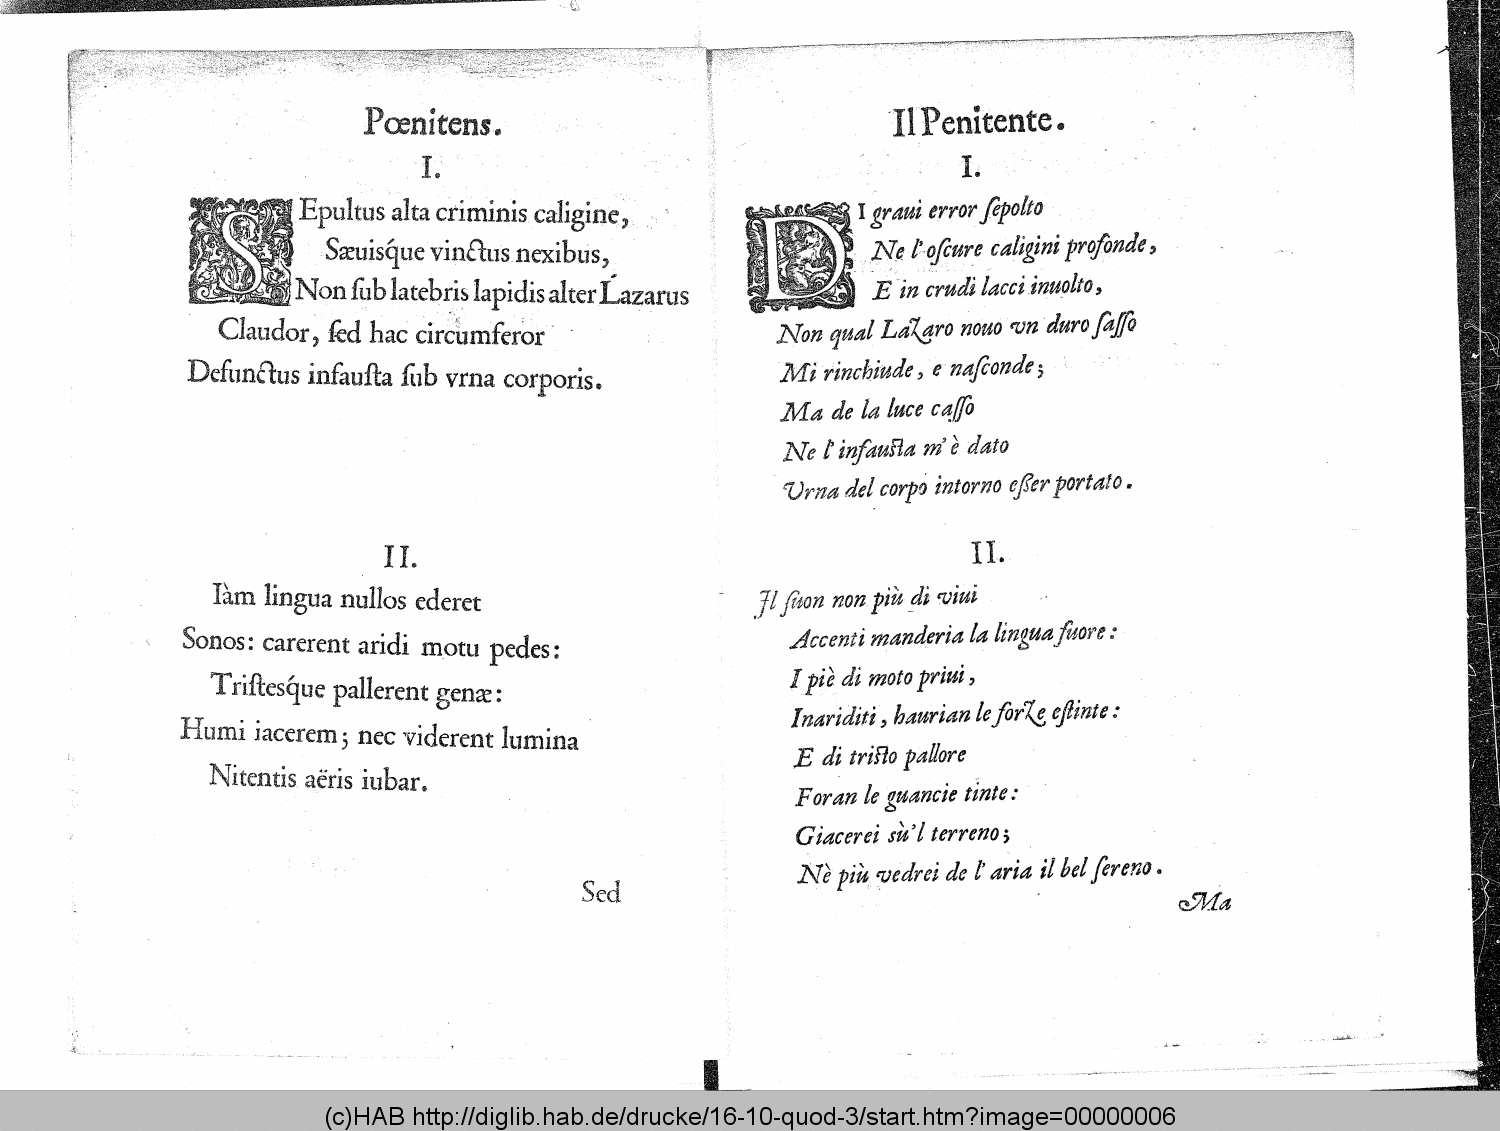 Pœnitens.
I.
SEpultus alta criminis caligine,
Sæuisq́ue vinctus nexibus,
Non ſub latebris lapidis alter Lazarus
Claudor, ſed hac circumferor
Defunctus infauſta ſub vrna corporis.
II.
Iàm lingua nullos ederet
Sonos: carerent aridi motu pedes:
Triſtesq́ue pallerent genæ:
Humi iacerem; nec viderent lumina
Nitentis aëris iubar.
Sed
Il Penitente.
I.
DI graui error ſepolto
Ne l'oſcure caligini profonde,
E in crudi lacci inuolto,
Non qual Lazaro nouo vn duro ſaſſo
Mi rinchiude, e naſconde;
Ma de la luce caſſo
Ne l'infauſta m'è dato
Vrna del corpo intorno eßer portato.
II.
Il ſuon non più di viui
Accenti manderia la lingua fuore:
I piè di moto priui,
Inariditi, haurian le forze eſtinte:
E di triſto pallore
Foran le guancie tinte:
Giacerei sù'l terreno;
Nè più vedrei de l'aria il bel ſereno.
Ma
(c)HAB http://diglib.hab.de/drucke/16-10-quod-3/start.htm?image=00000006